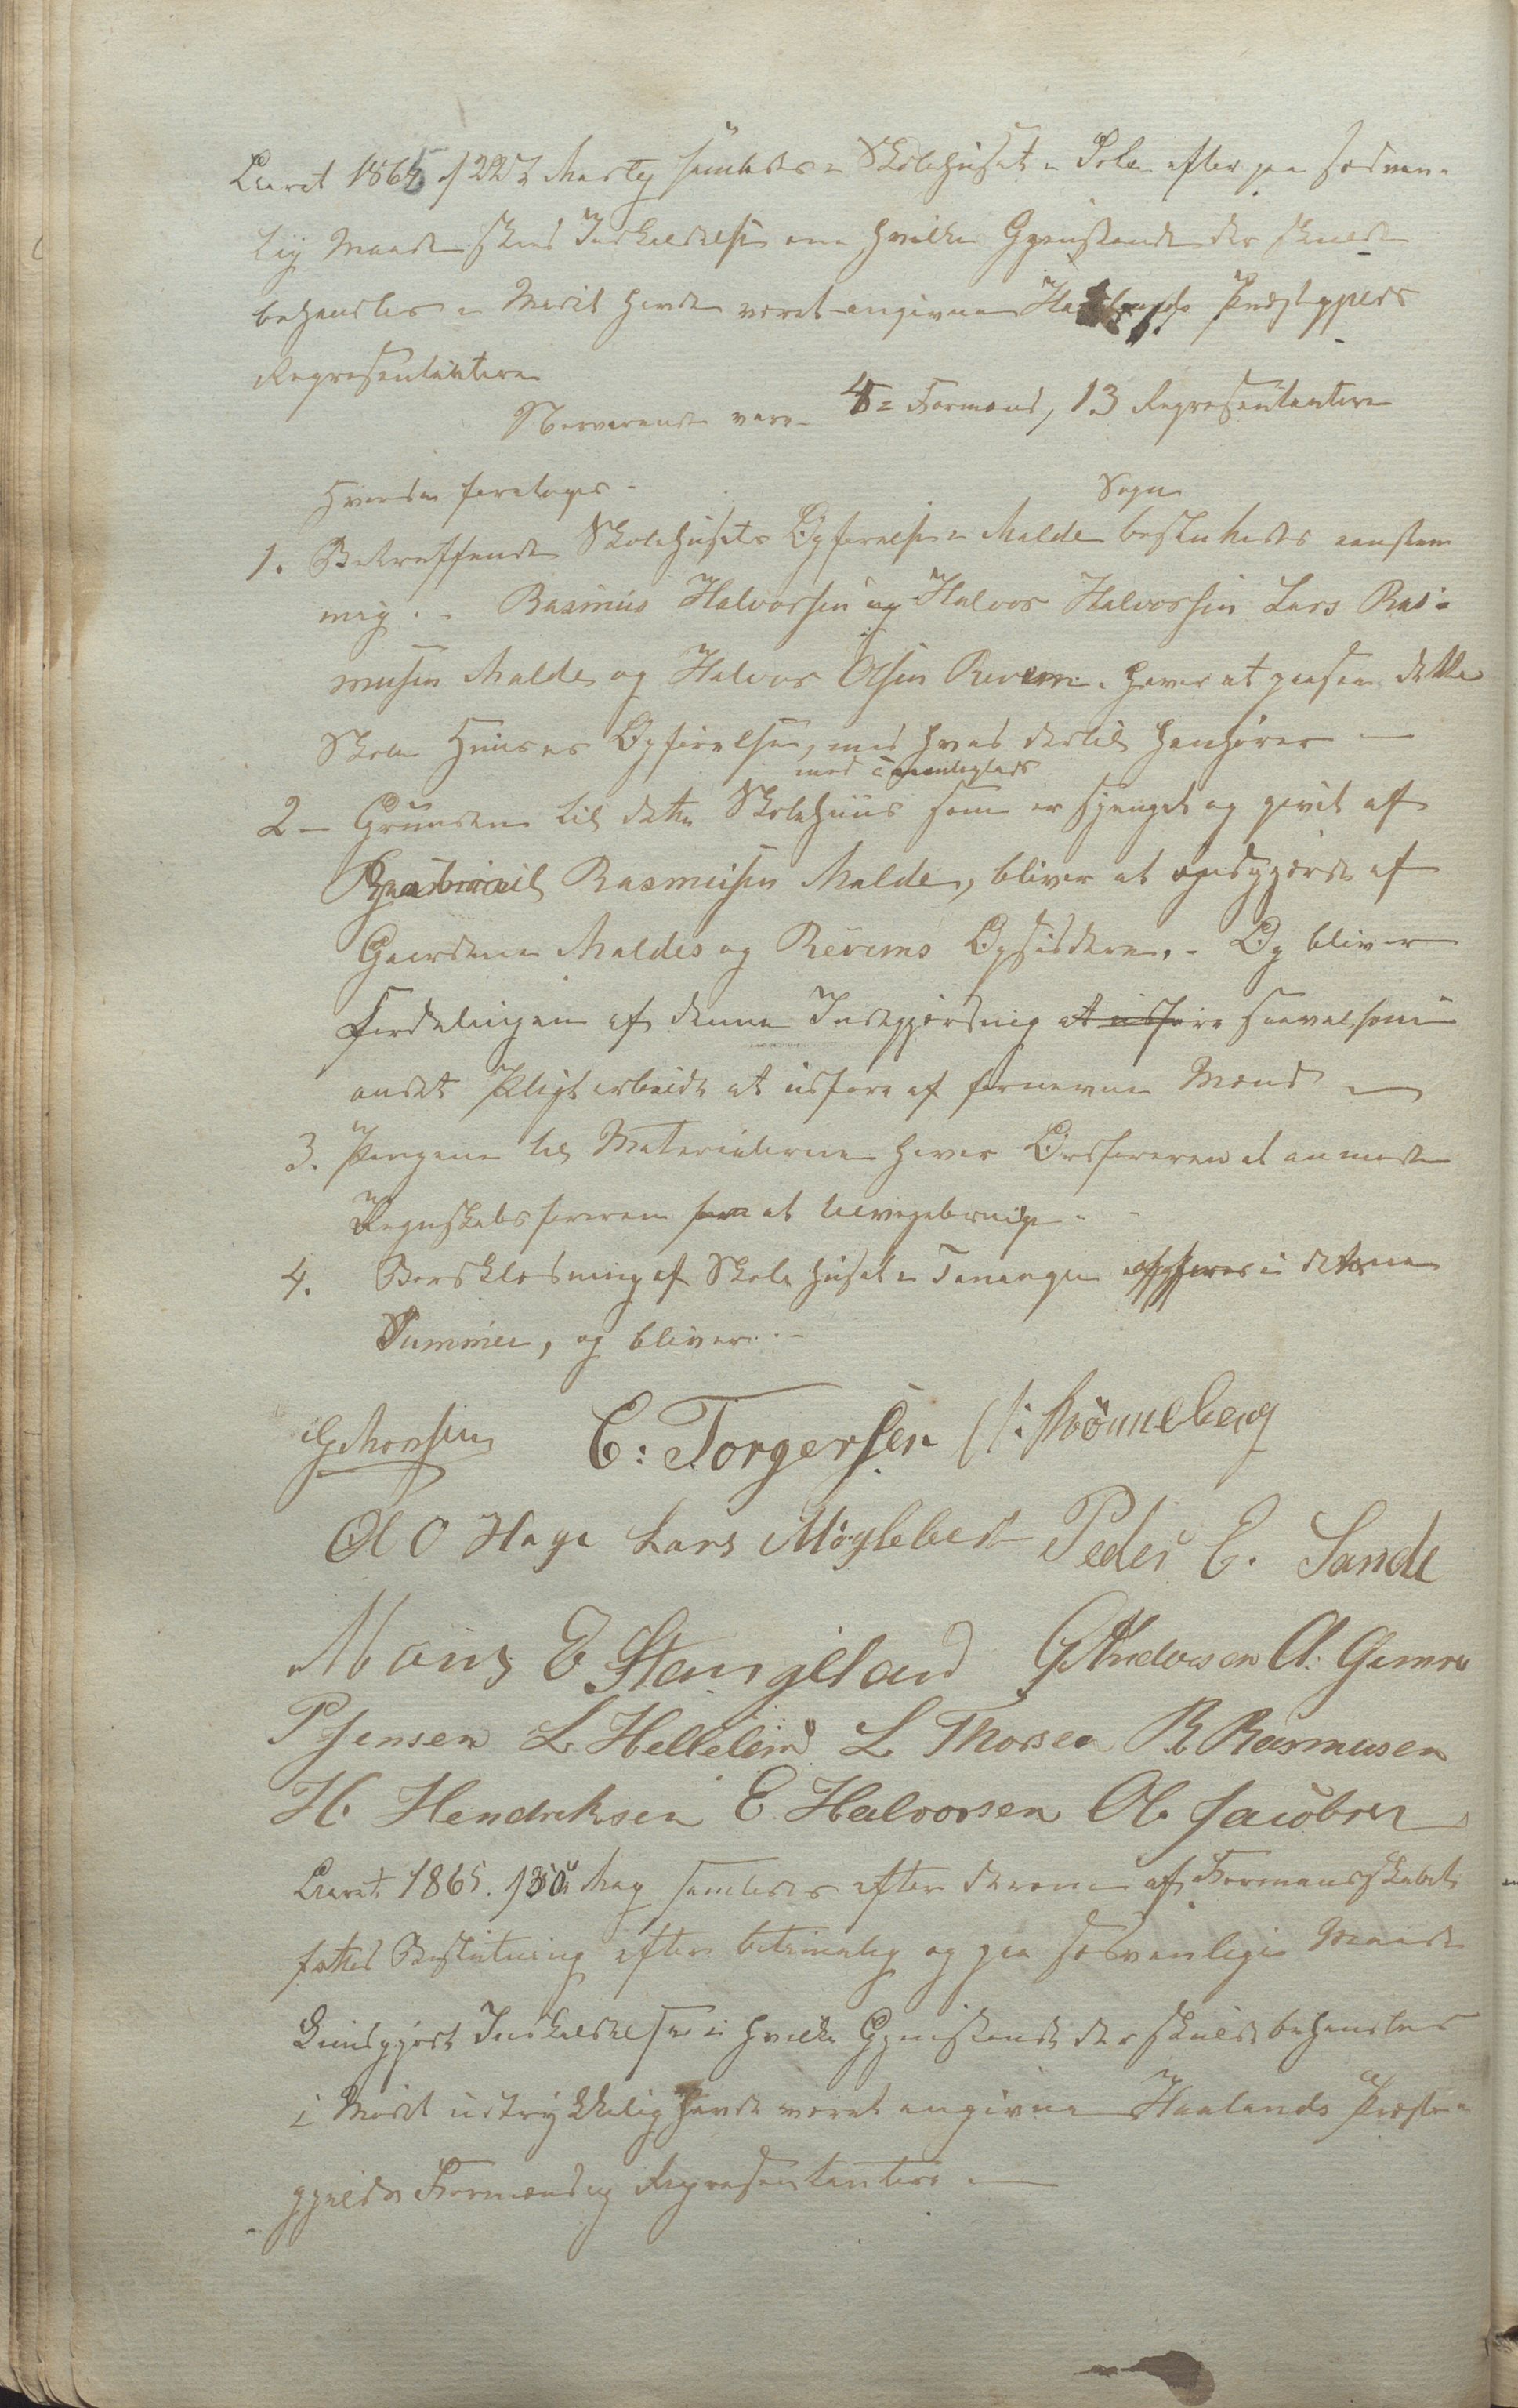 Aaret 1865 d 22de Martz samledes i Skolehuset i Sola efter paa sædvan-
lig Maade skeed Indkaldelse om hvilke Gjenstande der skulde
behandles i Mødet havde været angivne Haalands Præstegjelds
Repræsentantere
Nærværende vare 4 Formænd, 13 Repræsentantere
Hvorda foretoges -
Sogn
1. Betræffende Skolehusets Opførelse i Malde besluttedes eenstem
mig. - Rasmus Halvorsen og Halvor Halvorsen Lars Ras-
musen Malde og Halvor Olsen Revem. haver at paasee dette
Skole Huuses Opførelse, med hvad dertil henhører -
med
2 - Grunden til dette Skolehuus som er skjænket og givet af
Rasmusen Malde, bliver at af
Gaardene Maldes og Revems Opsiddere. - Og bliver
Fordelingen af denne Indgjerdning at udføre saavelsom
andet Pligtarbeide at udføre af fornevne Mænd -
3. Pengene til Materialerne haver Ordføreren at anmode
Regnskabsføreren om at tilveiebringe -
4. Bordklædning af Skolehuset i Tananger i denne
Summer, og bliver. -
G Monsen C: Torgersen Svönneberg
O O Haga Lars Möglebust Peder E. Sande
Mons E Stangeland G Andersen A. Gimre
P Jensen L. Helleland L Thorsen R Rasmusen
H. Hendriksen E Halvorsen Ol. Jacobsen
Aaret 1865. 30 May samledes efter derom af Formandskabet
fattet Beslutning efter betimelig og paa sædvanlige Maade
kundgjort Indkaldelse i hvilke Gjenstande der skulde behandles
i Mødet udtrykkelig havde været angivne Haalands Præste-
gjelds Formænd og Repræsentantere -